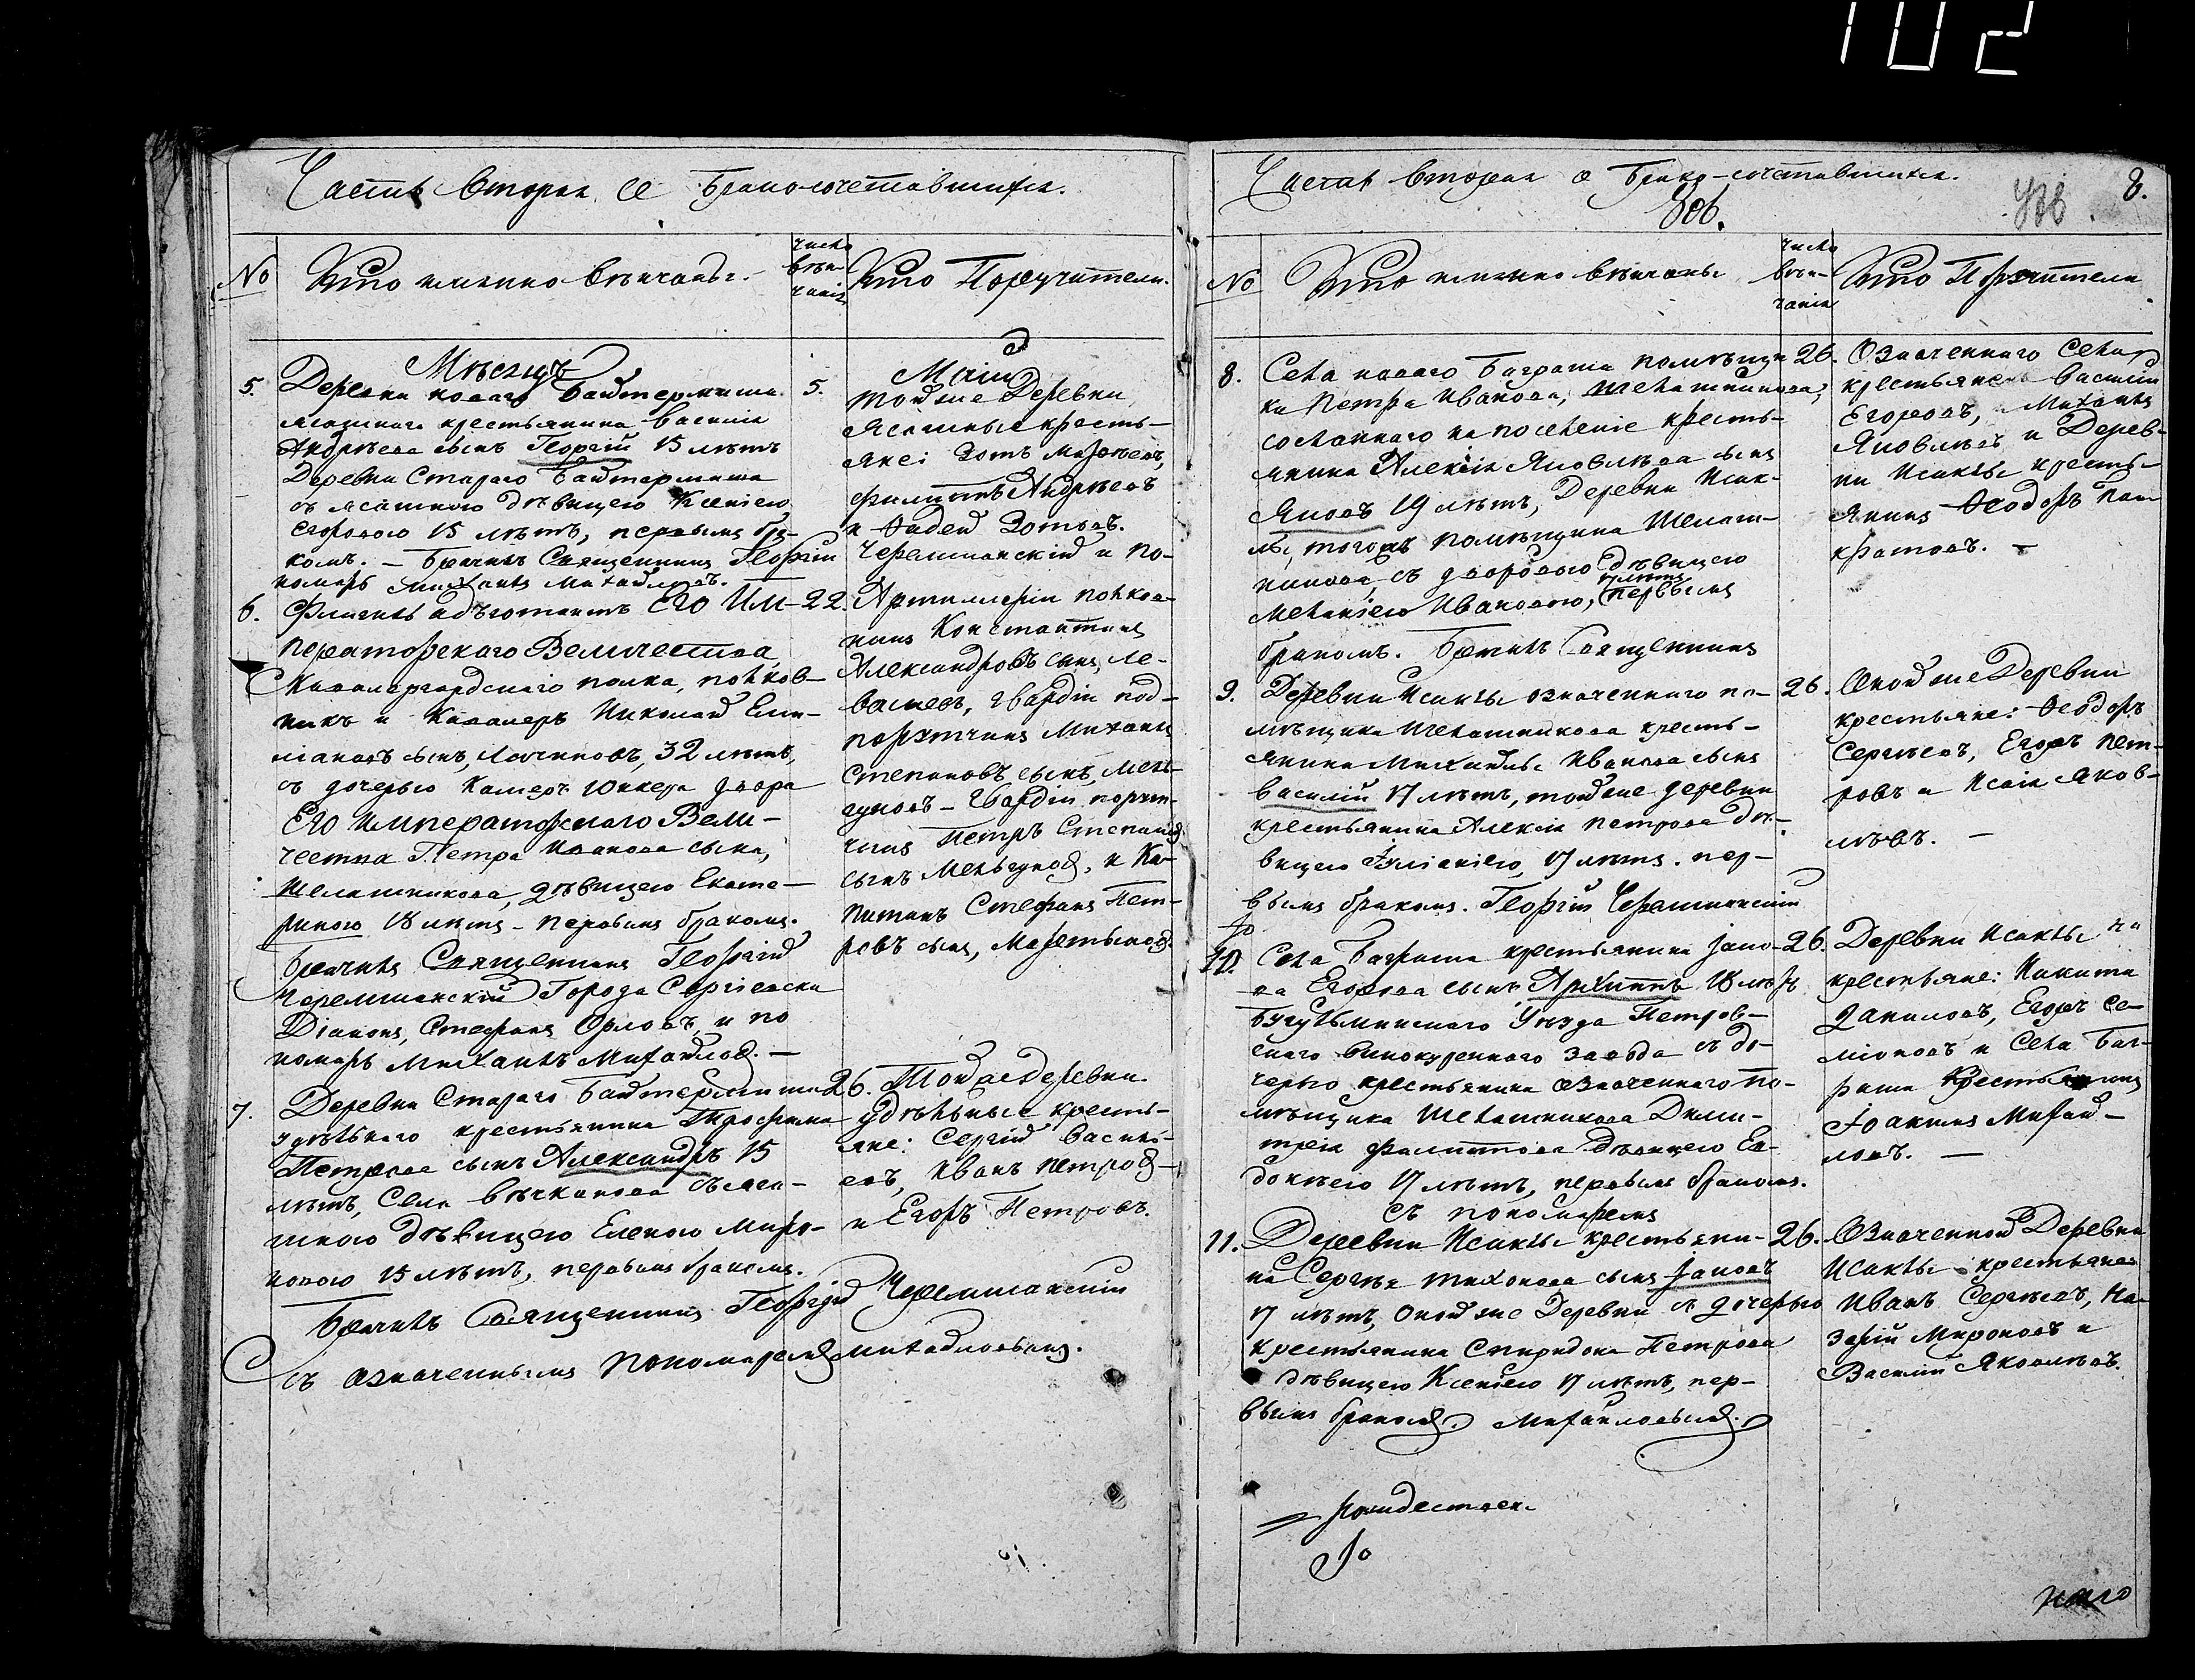 102
Часть вторая о Брако-сочетавшихся.
№
Кто именно венчаны.
число
вѣн-
чанія
Кто Поручители.
Мѣсяцъ
Маій
5. Деревни новаго Байтермиша
ясашнаго крестьянина Василія
Андрѣева сынъ Георгій 15 лѣтъ
Деревни Стараго Байтермиша
съ ясашною дѣвицею Ксеніею
Егоровою 15 лѣтъ, первымъ бра-
комъ. – Брачилъ Священникъ Георгій
номарь Михаилъ Михайловъ.
5.
тойже Деревни
ясашные кресть-
яне: Зотъ
Филиппъ Андрѣевъ
и Фадей Зотовъ.
Черемшанскій и по-
6. Флигель адъютантъ Его Им-
ператорскаго Величества
Кавалергардскаго полка, полков-
никъ и Кавалеръ Николай Еми-
ліановъ сынъ, Лачиновъ, 32 лѣтъ,
съ дочерью Камеръ Юнкера двора
Его Императорскаго Вели-
чества Петра Иванова сына,
Шелашникова, дѣвицею Екате-
риною 18 лѣтъ – первымъ бракомъ.
Брачилъ Священникъ Георгій
Черемшанскій Города Сергіевска
Діаконъ, Стефанъ Орловъ, и по
номарь Михаилъ Михайловъ. –
22. Артиллеріи полков-
никъ Константинъ
Александровъ сынъ, Ле-
вашевъ, Гвардіи под-
порутчикъ Михаилъ
Степановъ сынъ, Мель-
гуновъ – Гвардіи порут-
чикъ Петръ Степановъ
сынъ Мельгуновъ, и Ка-
питанъ Стефанъ Пет-
ровъ сынъ,
7. Деревни Стараго Байтермиша
удѣльнаго крестьянина Трофима
Петрова сынъ Александръ 15
лѣтъ, Села Вечканова съ яса-
шною дѣвицею Еленою Миро-
новою 15 лѣтъ, первымъ бракомъ.
Брачилъ Священникъ Георгій Черемшанскій
съ означеннымъ Пономаремъ Михайловымъ.
26. Тойже деревни
удѣльные кресть-
яне: Сергій Василь-
евъ, Иванъ Петровъ –
и Егоръ Петровъ.
Часть вторая о Брако-сочетавшихся.
8.
№
Кто именно вѣнчаны
число
вѣн-
чанія
Кто Поручители
8. Села новаго Багряша помѣщи
ка Петра Иванова, Шелашникова,
сосланнаго на поселеніе кресть-
янина Алексія Яковлѣва сынъ
Яковъ 19 лѣтъ, Деревни Исак-
лы, тогожъ помѣщика Шелаш-
никова, съ дворовою дѣвицею
Меланіею Ивановою, 17 лѣтъ первымъ
бракомъ. Брачилъ Священникъ
26. Означеннаго Села
крестьяне Василій
Егоровъ, Михаилъ
Яковлѣвъ и Дерев-
ни Исаклы кресть-
янинъ Ѳеодоръ Пан-
кратовъ. –
9. Деревни Исаклы означеннаго по-
мѣщика Шелашникова кресть-
янина Михаила Иванова сынъ
Василій 17 лѣтъ, тойже деревни
крестьянина Алексія Петрова дѣ-
вицею Іуліаніею, 17 лѣтъ. пер-
вымъ бракомъ. Георгій Черемшанскій
26. Онойже Деревни
крестьяне: Ѳеодоръ
Сергѣевъ, Егоръ Пет-
ровъ и Исаія Яков-
лѣвъ. –
10. Села Багряша крестьянина Іако-
ва Егорова сынъ Архиппъ 18 лѣтъ
Бугульминскаго Уѣзда Петров-
скаго винокуреннаго завода съ до-
черью крестьянина означеннаго по-
мѣщика Шелашникова Дими-
трія Филиппова дѣвицею Ев-
докѣею 17 лѣтъ, первымъ бракомъ.
съ пономаремъ
26. Деревни Исаклы
крестьяне: Никита
Даниловъ, Егоръ Се-
міоновъ и Села Баг-
ряша крестьянинъ
Іоакимъ Михай-
ловъ. –
11. Деревни Исаклы крестьяни-
на Сергѣя Тихонова сынъ Іаковъ
17 лѣтъ, онойже Деревни съ дочерью
крестьянина Спиридона Петрова
дѣвицею Ксеніею 17 лѣтъ, пер-
вымъ бракомъ. Михайловымъ.
26. Означенной Деревни
Исаклы – крестьяне
Иванъ Сергѣевъ, На-
зарій Мироновъ и
Василій Яковлѣвъ.
Рождествен-